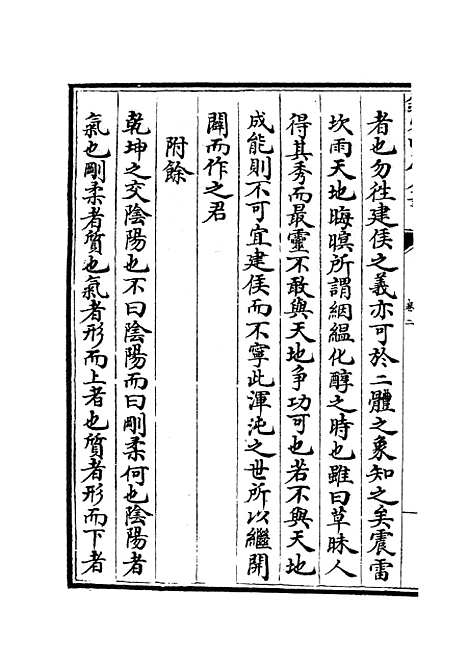 者也勿徃建侯之義亦可於二體之象知之矣震雷
坎雨天地晦暝所謂絪縕化醇之時也雖曰草昧人
得其秀而最靈不敢與天地争功可也若不與天地
成能則不可宜建侯而不寧此渾沌之世所以繼開
闢而作之君
附餘
乾坤之交陰陽也不曰陰陽而曰剛柔何也陰陽者
氣也剛柔者質也氣者形而上者也質者形而下者
卷二